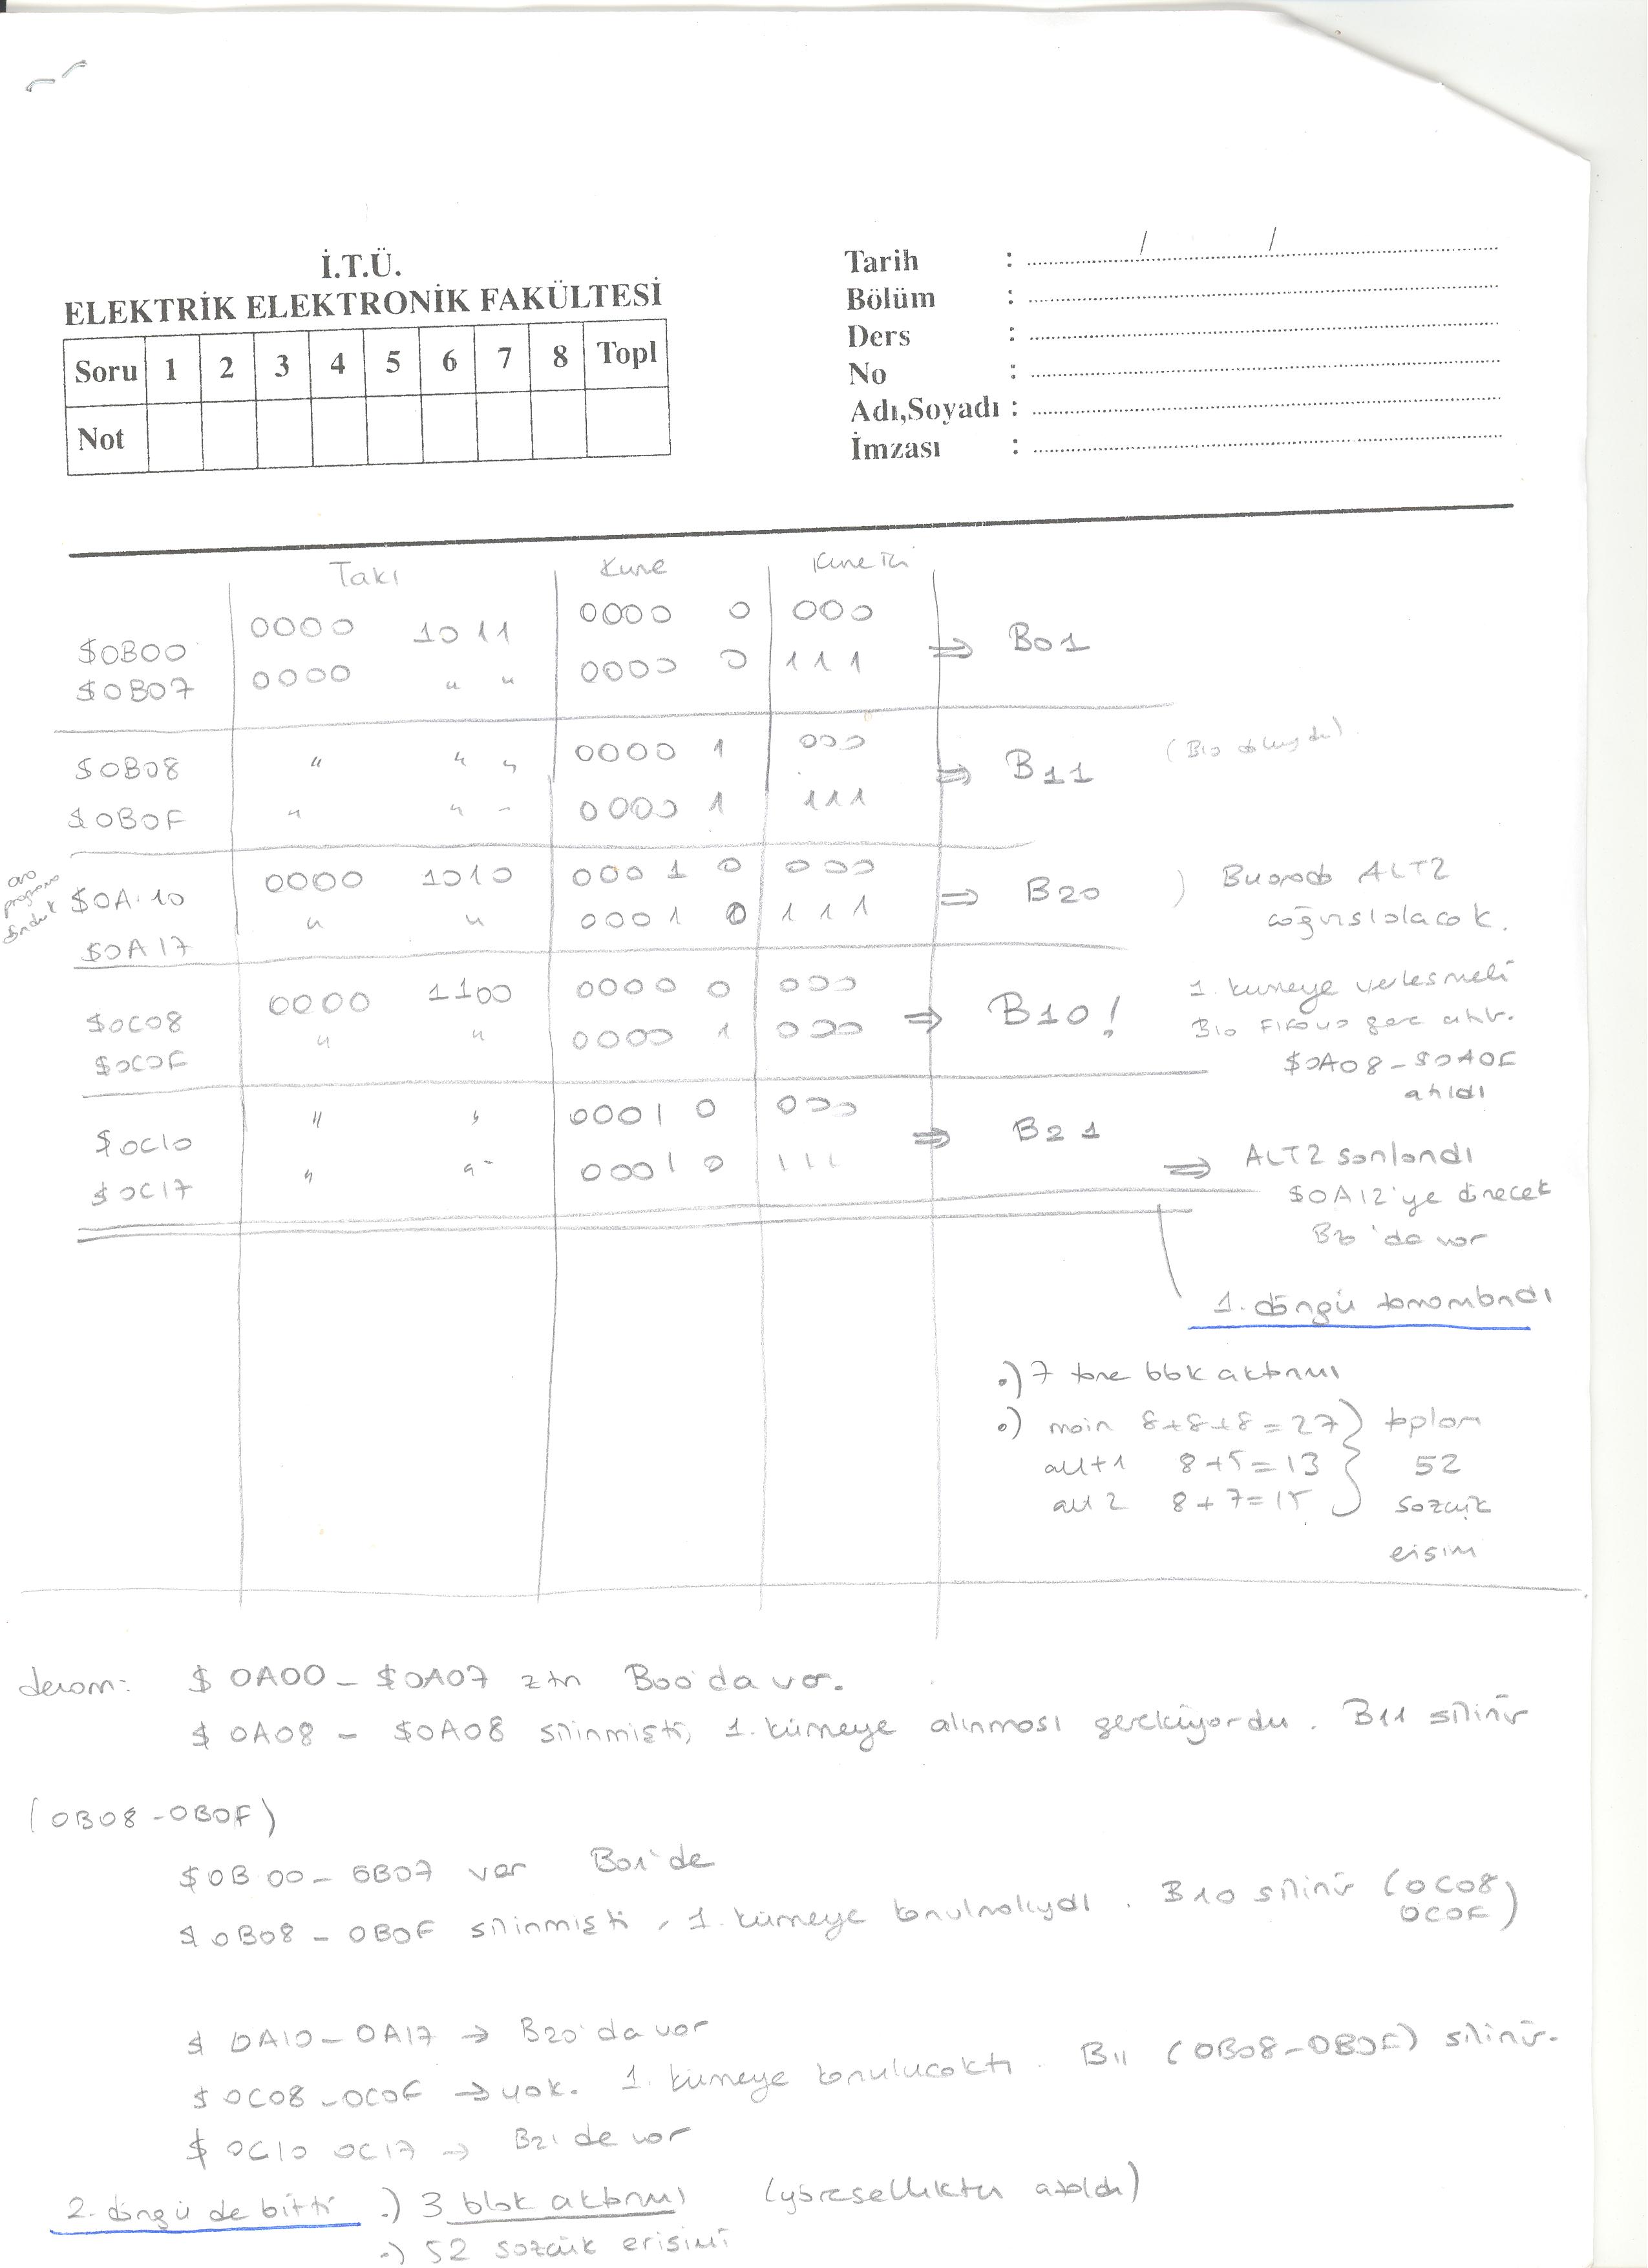 İ.T.Ü.
ELEKTRİK ELEKTRONİK FAKÜLTESİ
Soru 1 2 3 4 5 6 7 8 Topl
Not
Tarih : / /
Bölüm :
Ders :
No :
Adı,Soyadı :
İmzası :
Takı Küme Küme içi
$0B00 0000 1011 0000 0 000
$0B07 0000 " " 0000 0 111 ⇒ B01
$0B08 " " " 0000 1 000 ⇒ B11 (B10 doluydu)
$0B0F " " " 0000 1 111
ana programa döndük
$0A10 0000 1010 0001 0 000 ⇒ B20 ) Burada ALT2
$0A17 " " 0001 0 111 çağırılacak.
$0C08 0000 1100 0000 0 000 ⇒ B10! 1. kümeye yerleşmeli
$0C0F " " 0000 1 000 B10
$0A08-$0A0F
atıldı
$0C10 " " 0001 0 000 ⇒ B21
$0C17 " " 0001 0 111 ⇒ ALT2 sonlandı
$0A12'ye dönecek
B20'da var
1. döngü tamamlandı
•) 7 tane blok aktarımı
•) main 8+8+8=27 } toplam
alt1 8+5=13 52
alt 2 8+7=15 sözcük
erişim
devam: $0A00 - $0A07 ztn B00'da var.
$0A08 - $0A08 silinmişti, 1. kümeye alınması gerekiyordu. B11 silinir
(0B08-0B0F)
$0B00 - 0B07 var B01'de
$0B08 - 0B0F silinmişti, 1. kümeye konulmalıydı. B10 silinir (0C08
0C0F)
$0A10 - 0A17 → B20'da var
$0C08 - 0C0F → yok. 1. kümeye konulucaktı. B11 (0B08-0B0F) silinir.
$0C10 0C17 → B21 de var
2. döngü de bitti •) 3 blok aktarımı (yöresellikten azaldı)
•) 52 sözcük erişimi